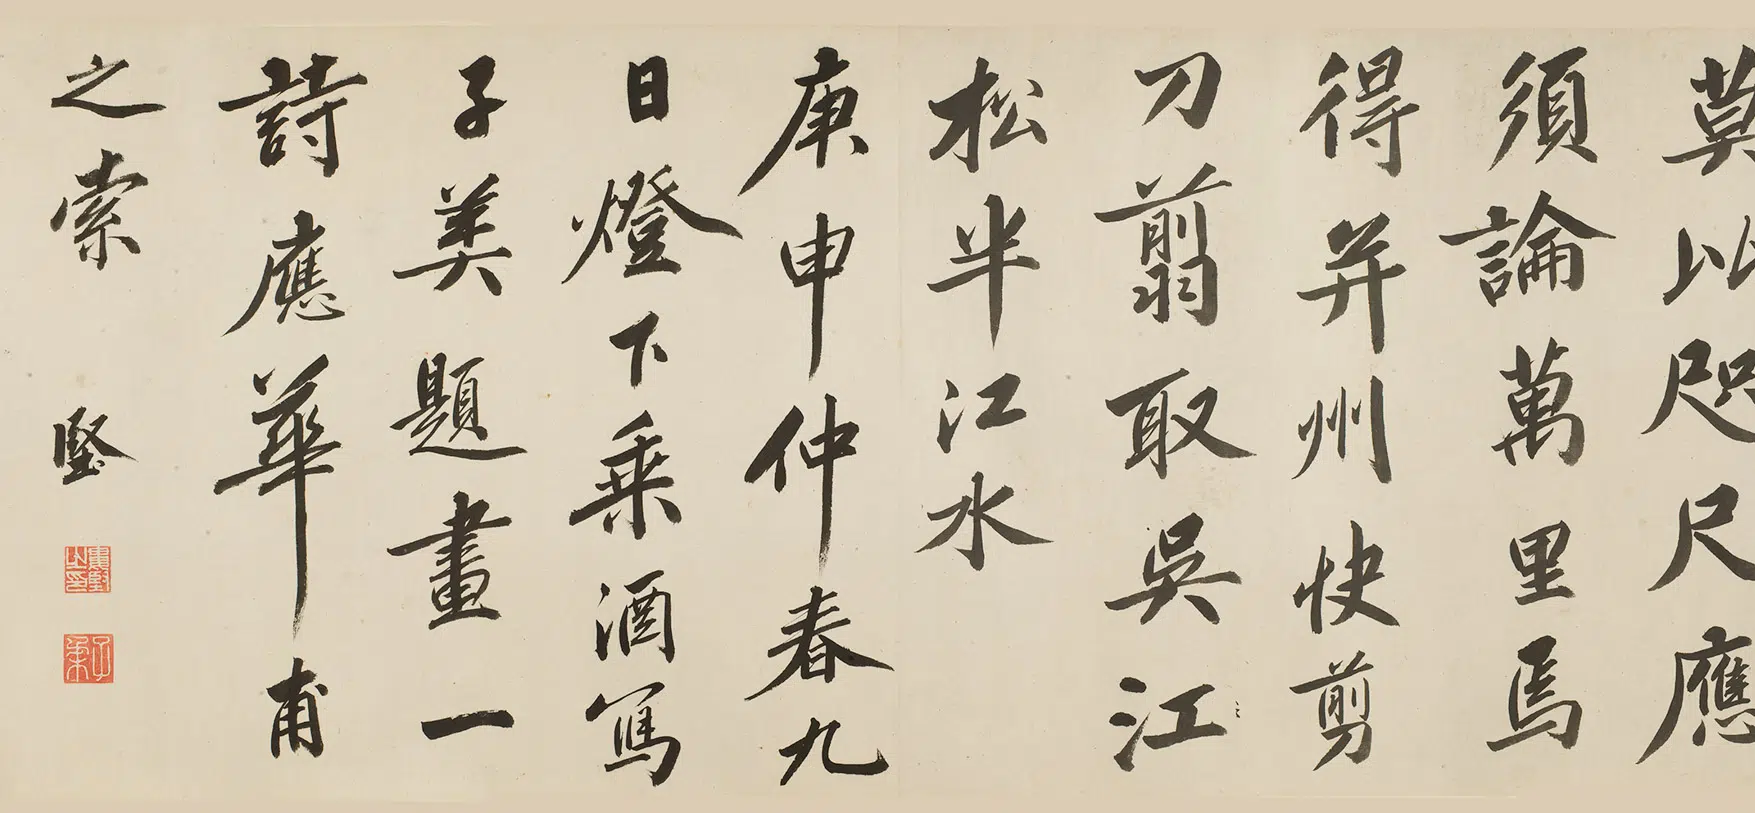 莫以咫尺應
須論萬里焉
得并州快剪
刀翦取吳江
松半江水
庚申仲春九
日燈下乘酒寫
子美題畫一
詩應華甫
之索 堅
婁堅之印
子柔